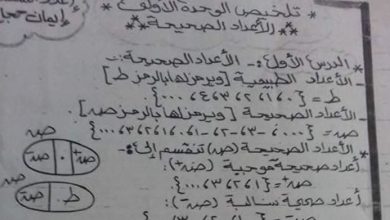 * تلخيص الوحدة الأولى *
** الأعداد الصحيحة **
المدرس الأول :- الأعداد الصحيحة :-
الأعداد الطبيعية [ويرمز لها بالرمز ط]
ط = {٠، ١، ٢، ٣، ٤، ...}
الأعداد الصحيحة [ويرمز لها بالرمز صـ]
صـ = {...، -٣، -٢، -١، ٠، ١، ٢، ٣، ...}
* الأعداد الصحيحة (صـ) تنقسم إلى :-
أعداد صحيحة موجبة (صـ+) :-
صـ+ = {١، ٢، ٣، ...}
أعداد صحيحة سالبة (صـ-) :-
صـ
صـ+ ٠ صـ-
صـ
ط صـ-